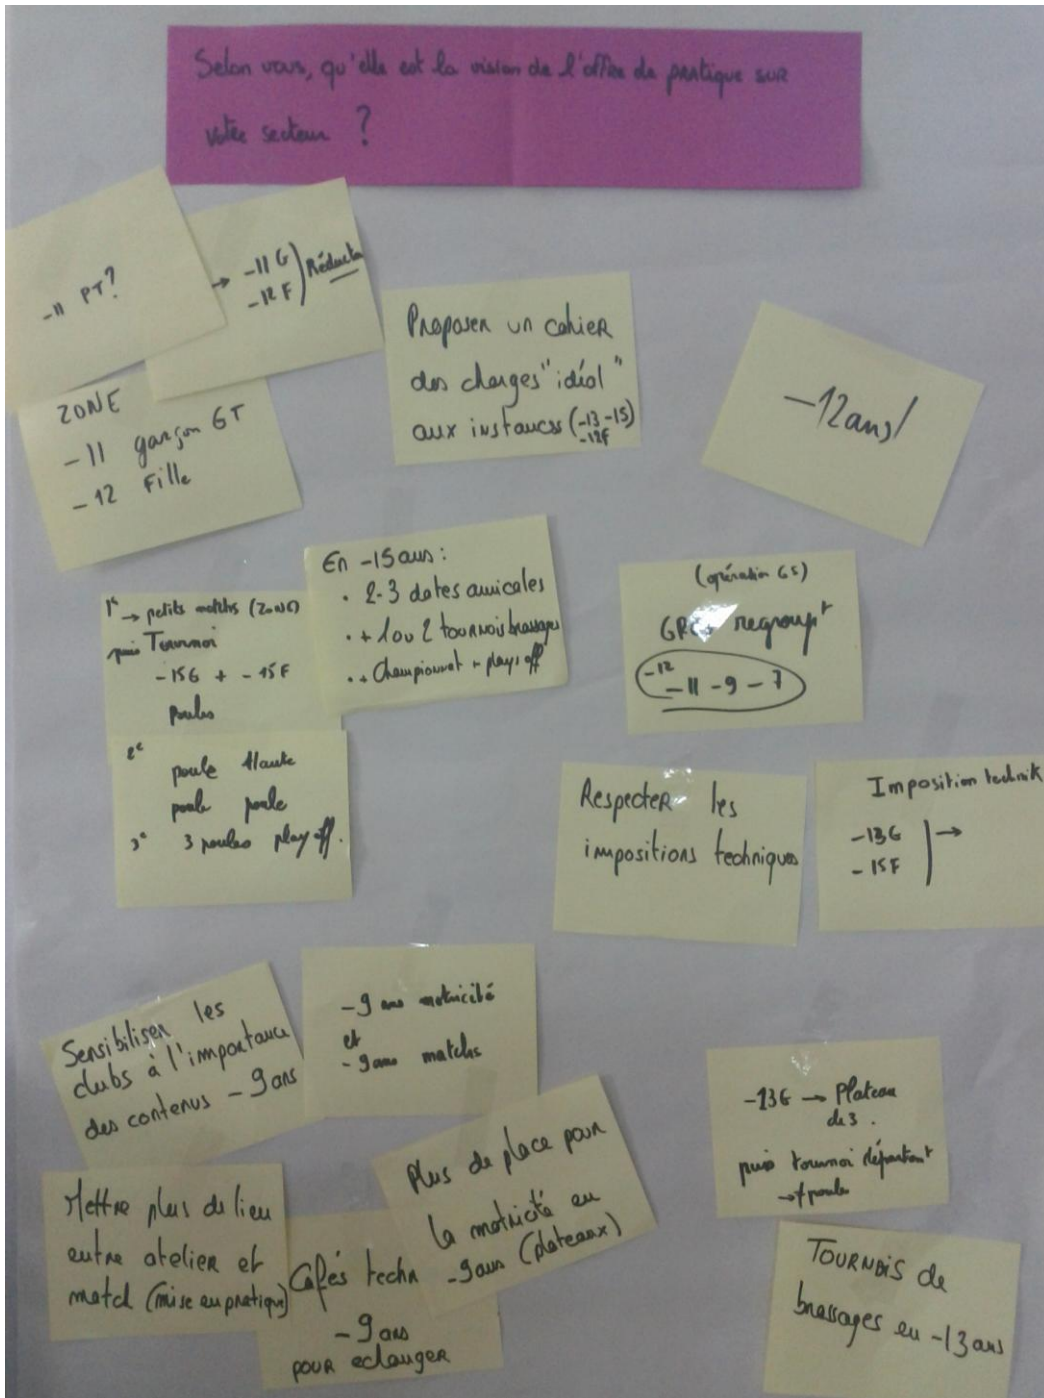 Selon vous, qu'elle est la vision de l'offre de pratique sur
votre secteur ?
-11 PT?
→ -11 G
-12 F
Réduction
ZONE
-11 garçon GT
-12 Fille
Proposer un cahier
des charges "idéal"
aux instances (-13 -15)
-12F
-12ans/
1e → petits matchs (ZONE)
puis Tournoi
-15G + -15F
Poules
2e
poule Haute
poule poule
3e 3 poules play off.
En -15 ans :
. 2-3 dates amicales
. + 1 ou 2 tournois brassages
. + Championnat + plays off
(opération GS)
regroupt
-12
-11 -9 -7
Respecter les
impositions techniques
Imposition technik
-13G
-15F →
Sensibiliser les
clubs à l'importance
des contenus -9 ans
-9 ans motricité
et
-9 ans matchs
Mettre plus de lien
entre atelier et
match (mise en pratique)
Cafés techn
-9 ans
pour echanger
Plus de place pour
la motricité en
-9 ans (plateaux)
-13G → Plateau
de 3.
puis tournoi départemt
→ poule
TOURNOIS de
brassages en -13 ans